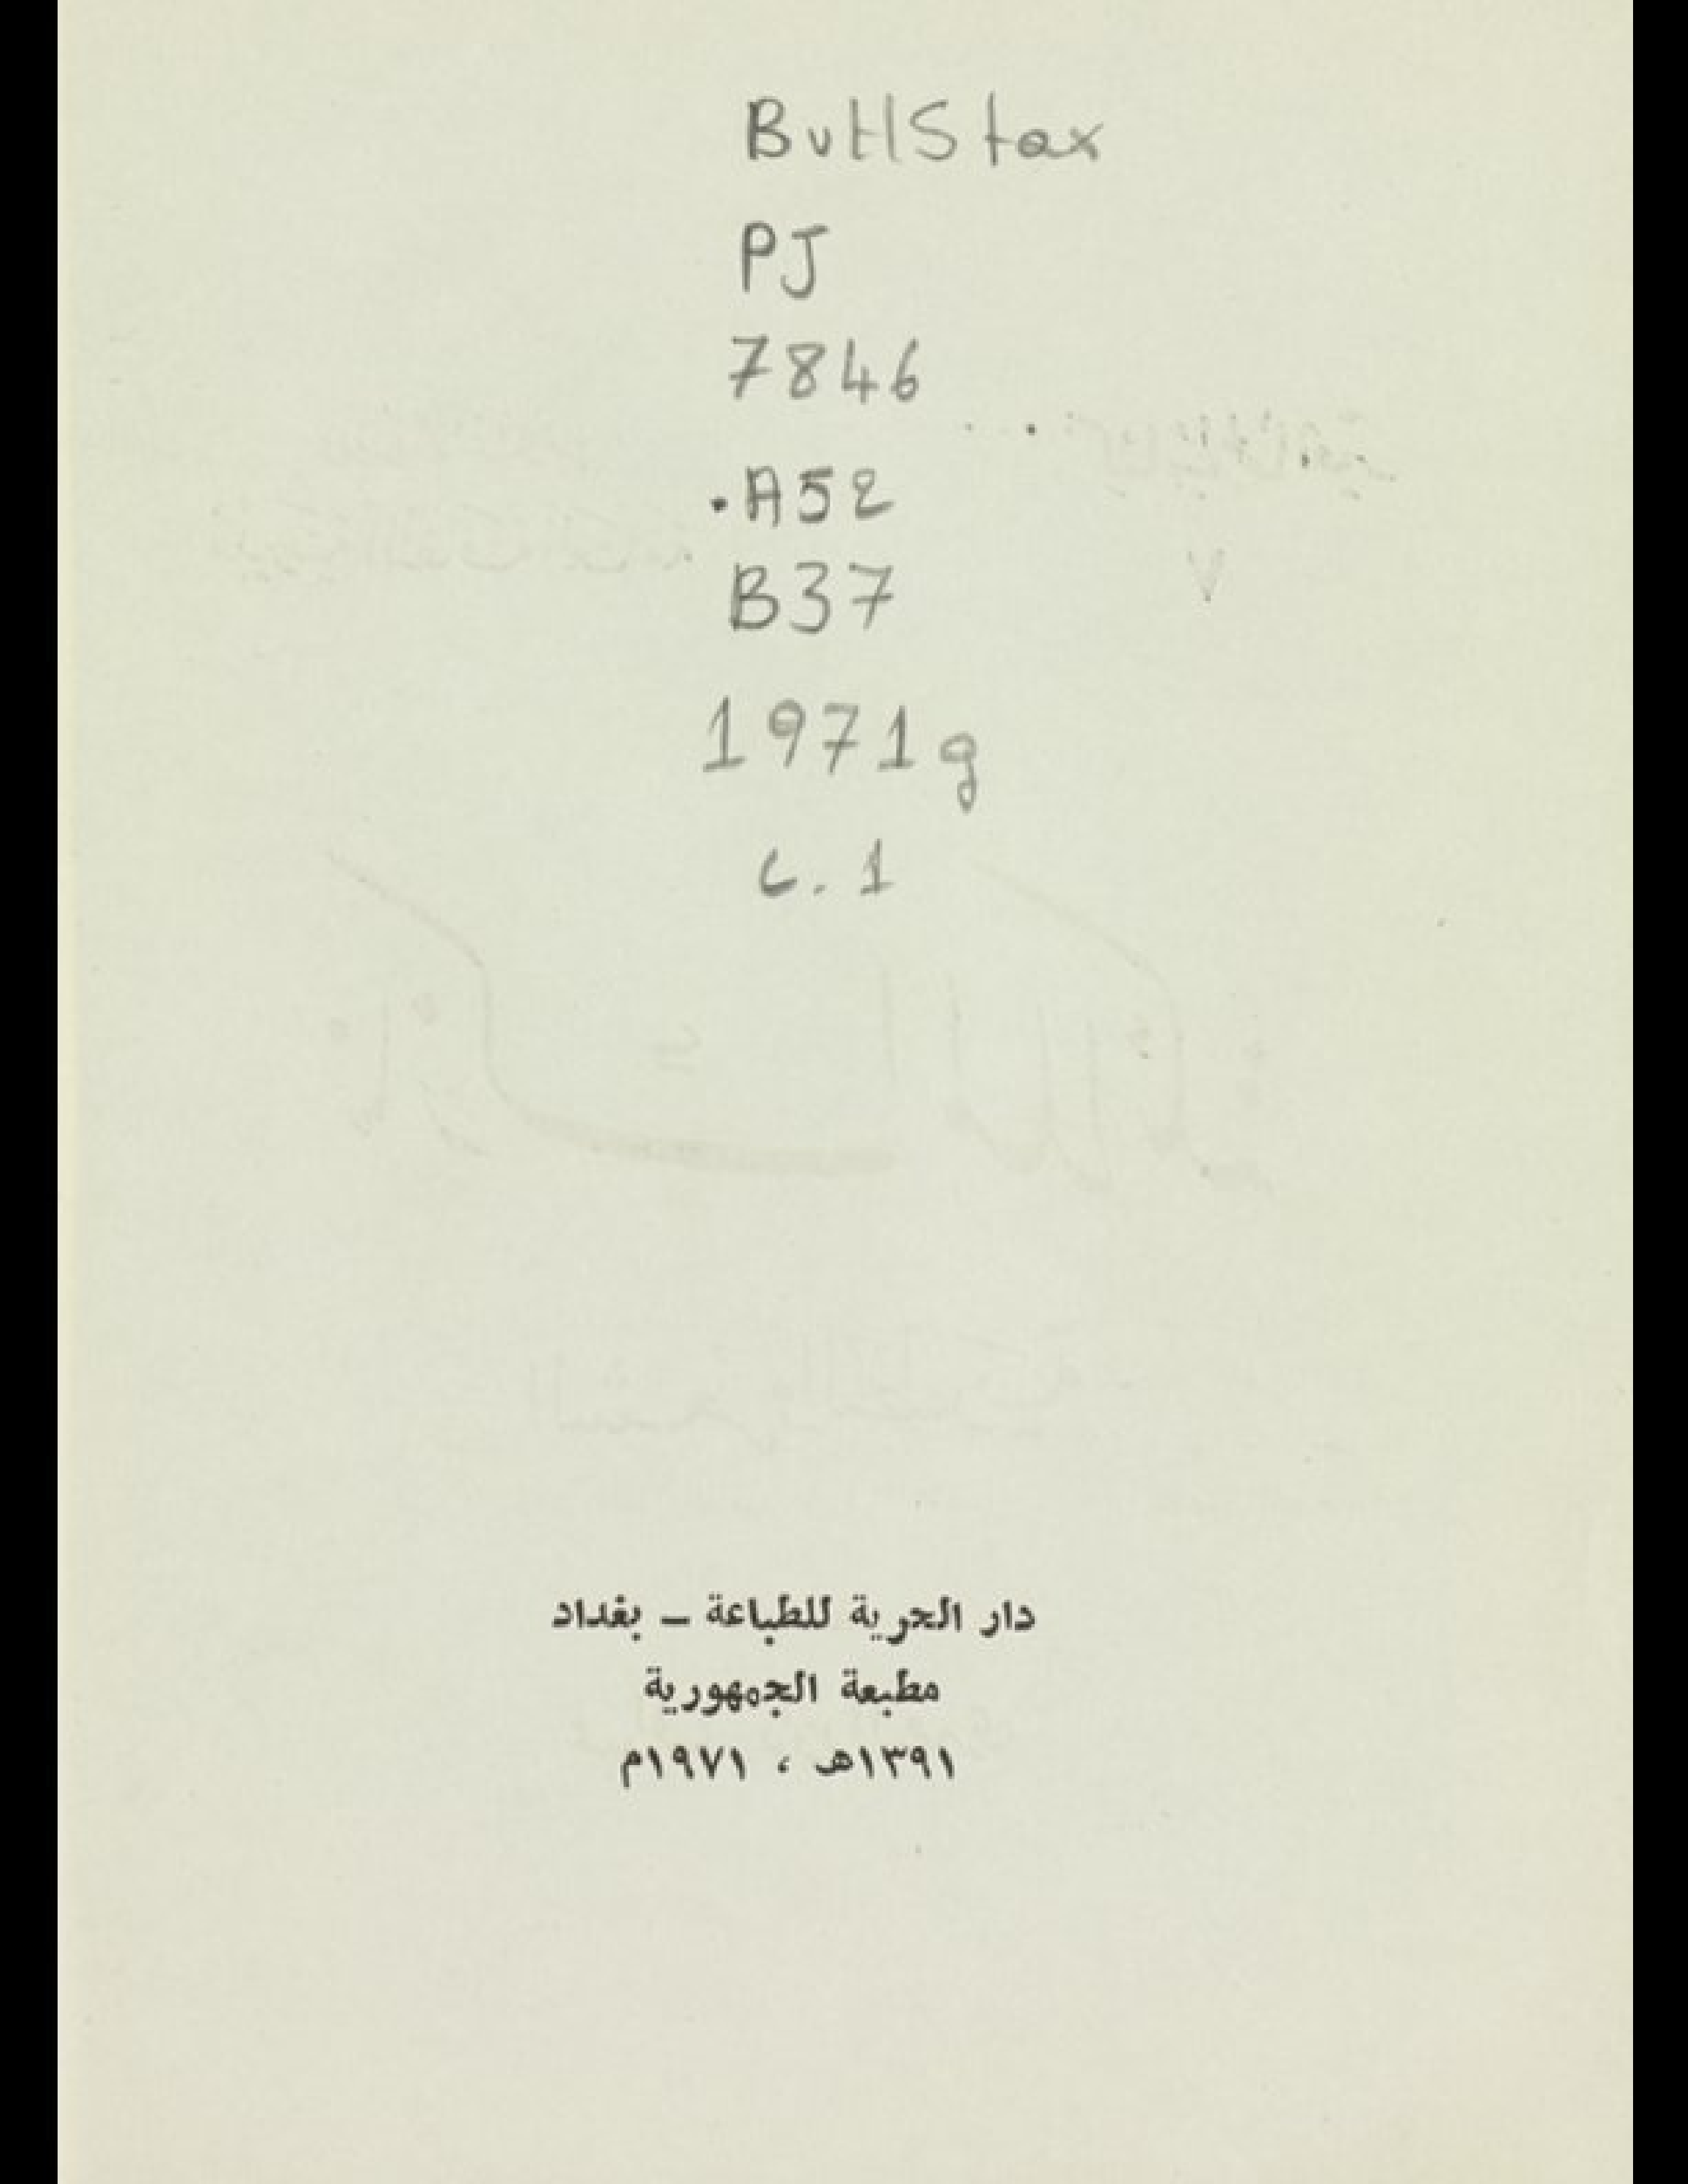 ButlStax
PJ
7846
.A52
B37
1971g
c.1
دار الحرية للطباعة – بغداد
مطبعة الجمهورية
١٣٩١هـ ، ١٩٧١م